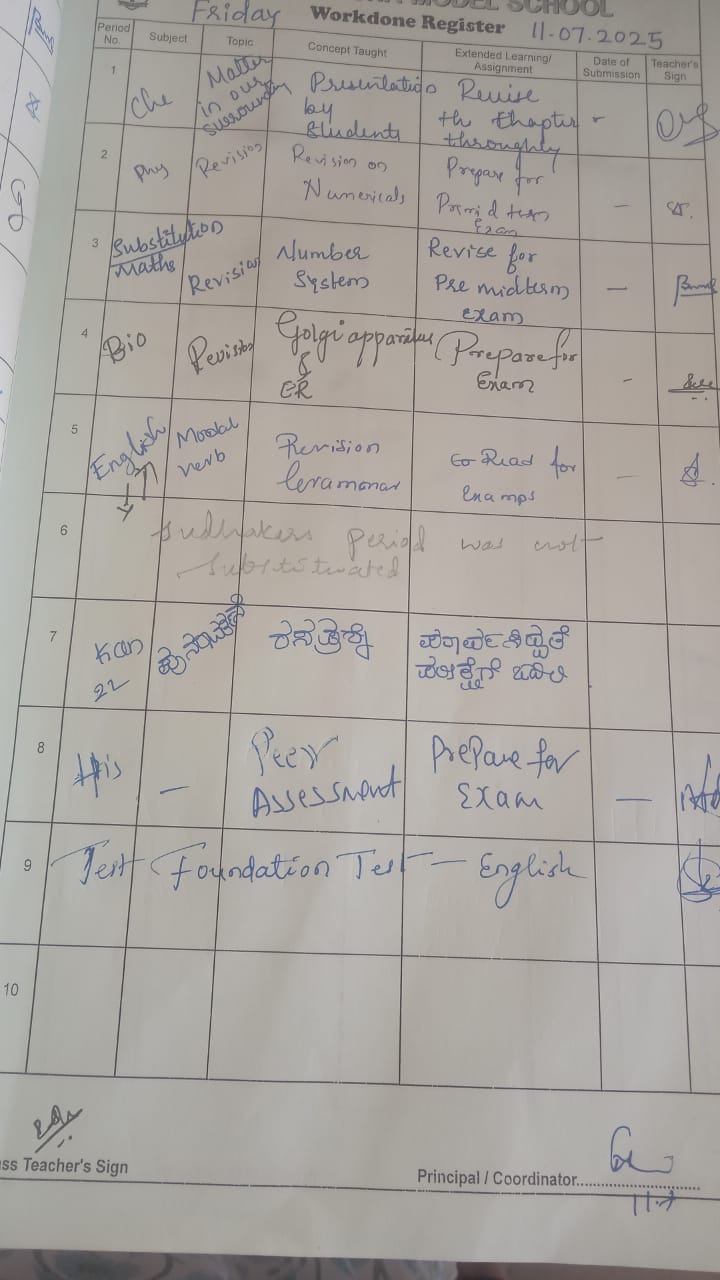 MODEL SCHOOL
Friday Workdone Register 11-07.2025
Period No. Subject Topic Concept Taught Extended Learning/ Assignment Date of Submission Teacher's Sign
1 Che Matter in our surrounding Presentatio by students Revise the Chapter throughly
2 Phy Revision Revision on Numericals Prepare for Premid term Exam —
3 Substitution Maths Revision Number System Revise for Pre midterm exam —
4 Bio Revision Golgi apparatus & ER Prepare for Exam -
5 English Modal verb Revision Read for —
6 Sudhakers period was not
substituated
7 Kan
22
8 His — Peer Assessment Prepare for Exam —
9 Test Foundation Test — English
10
ss Teacher's Sign
Principal / Coordinator
11.7